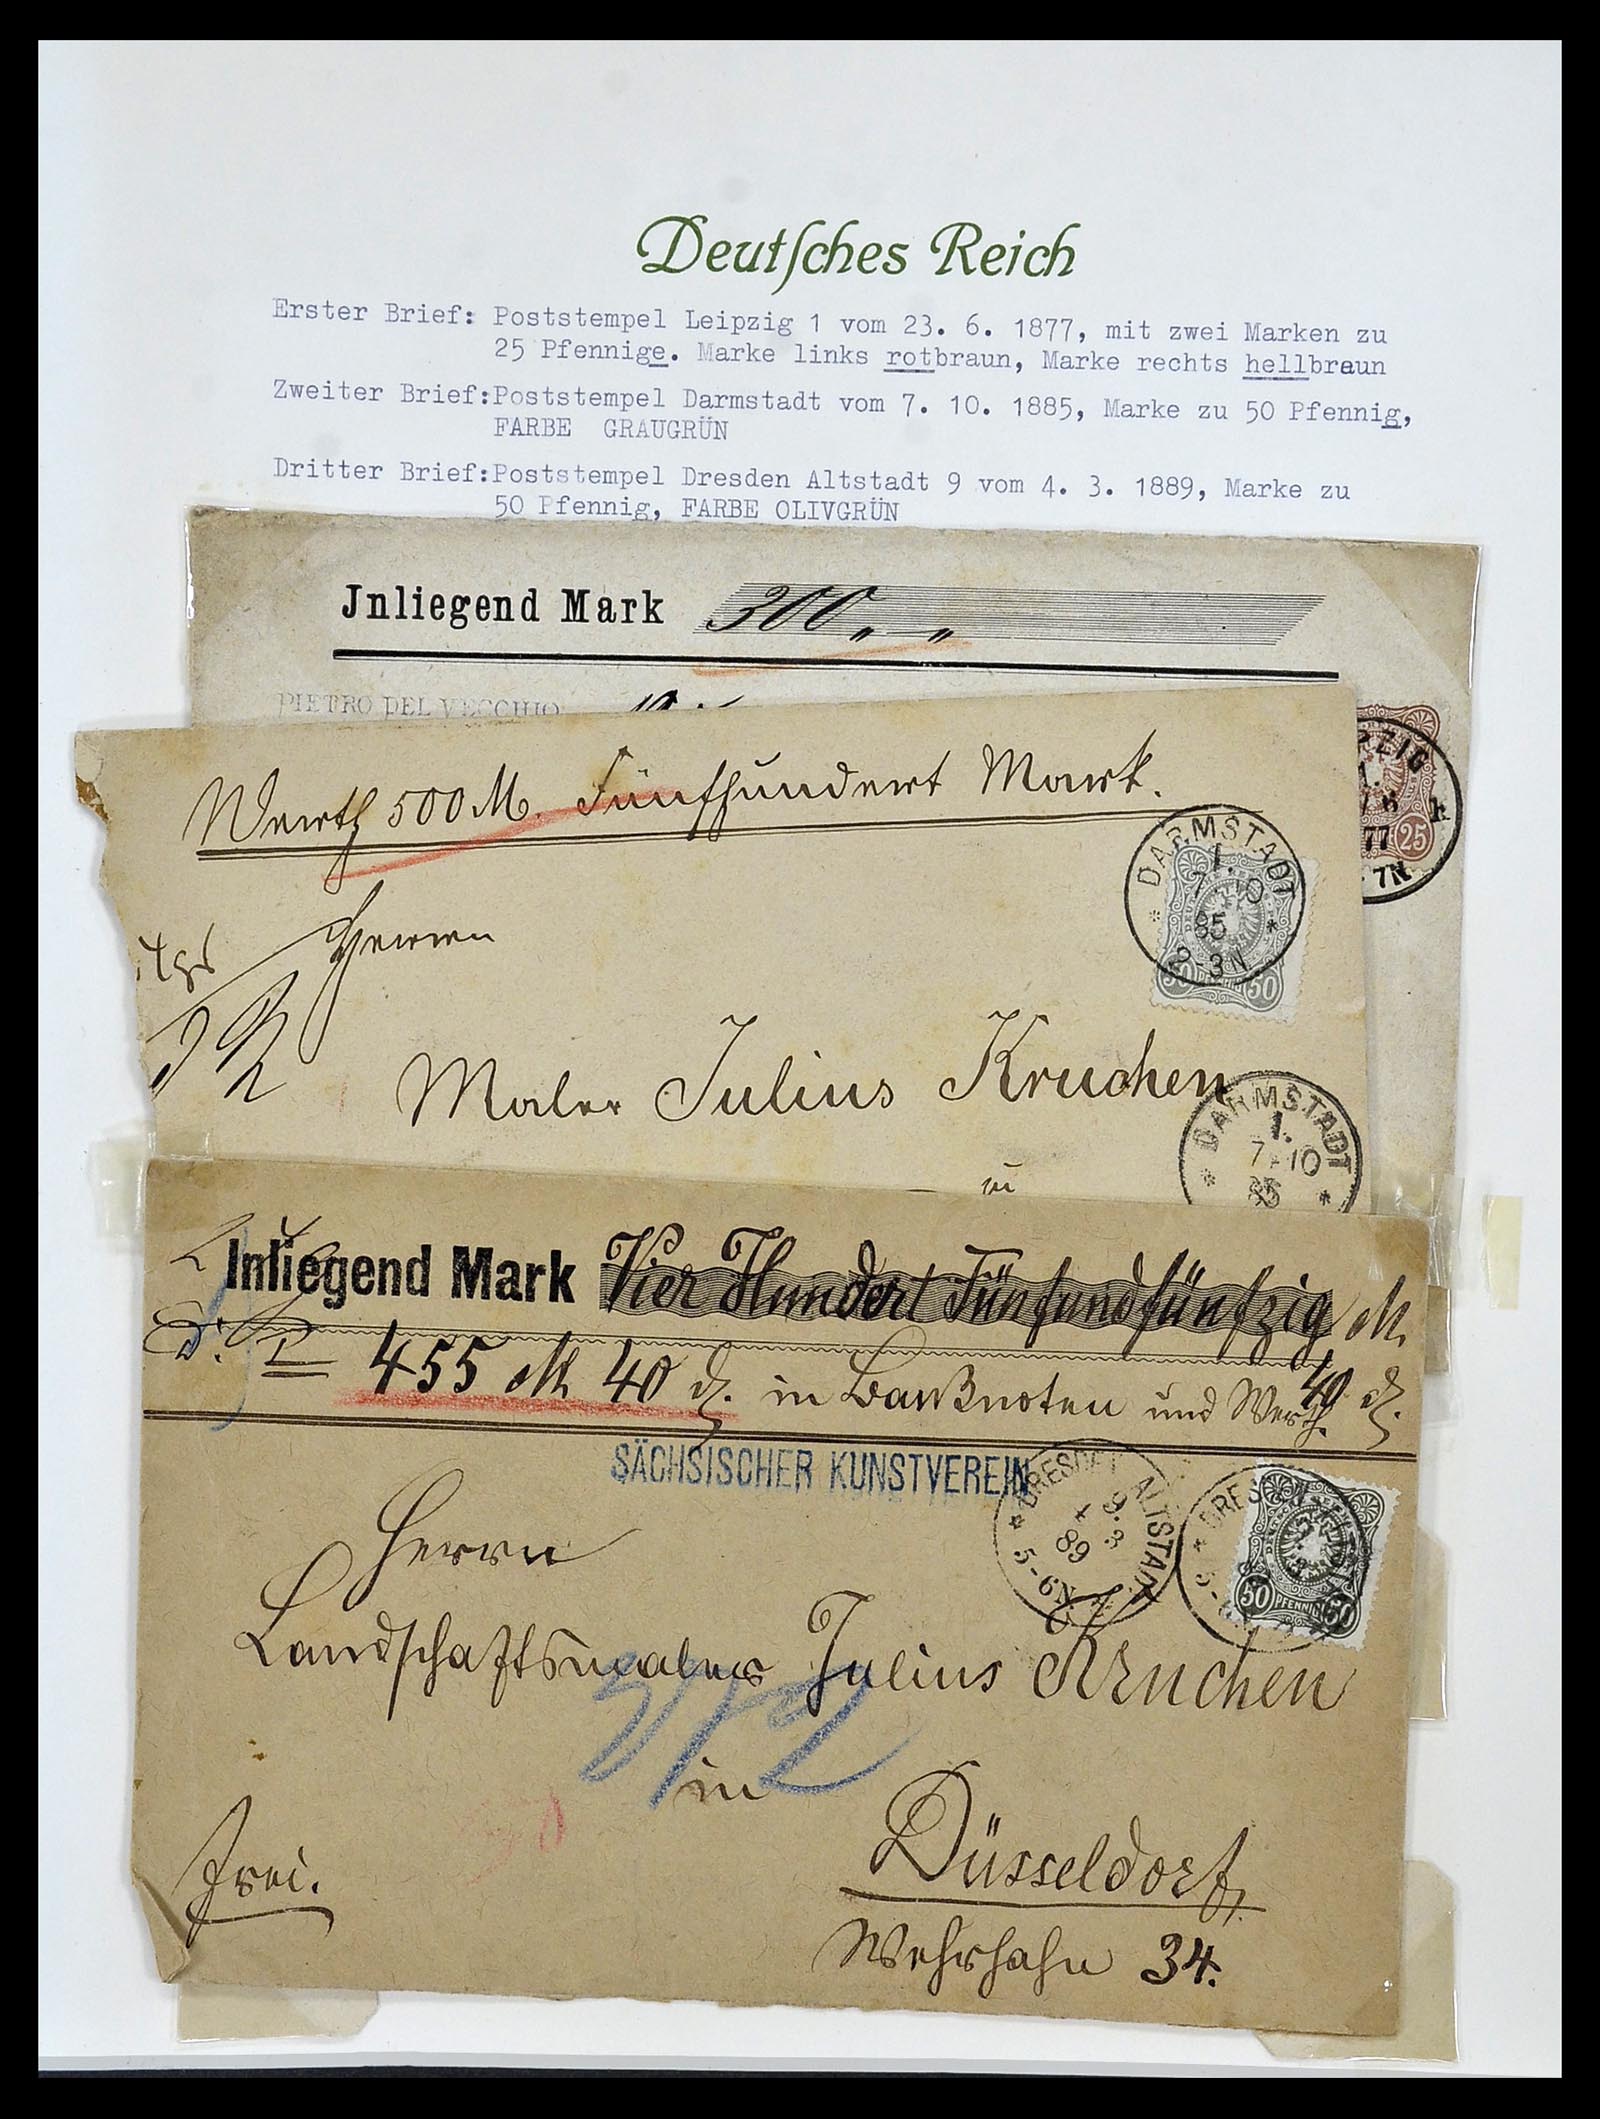 Deutsches Reich
Erster Brief: Poststempel Leipzig 1 vom 23. 6. 1877, mit zwei Marken zu
25 Pfennige. Marke links rotbraun, Marke rechts hellbraun
Zweiter Brief:Poststempel Darmstadt vom 7. 10. 1885, Marke zu 50 Pfennig,
FARBE GRAUGRÜN
Dritter Brief:Poststempel Dresden Altstadt 9 vom 4. 3. 1889, Marke zu
50 Pfennig, FARBE OLIVGRÜN
Jnliegend Mark 300 „ „
PIETRO DEL VECCHIO
77
25
7N
Werth 500 M. Fünfhundert Mark.
DARMSTADT
1.
7. 10
85
2-3N
50 PFENNIG 50
Herrn
Maler Julius Kruchen
DARMSTADT
1.
7. 10
85
Inliegend Mark Vier Hundert Fünfundfünfzig M.
455 M 40 d. in Banknoten und Werth. 40 d.
SÄCHSISCHER KUNSTVEREIN
DRESDEN ALTSTADT
9.
4 3
89
5-6N
DRESDEN
50 PFENNIG 50
Herrn
Landschaftsmaler Julius Kruchen
in
Düsseldorf
frei.
Wehrhahn 34.